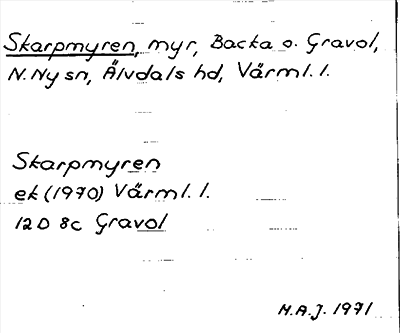 Skarpmyren, myr, Backa o. Gravol,
N. Ny sn, Älvdals hd, Värml. l.
Skarpmyren
ek (1970) Värml. l.
12D 8c Gravol
M.A.J. 1971